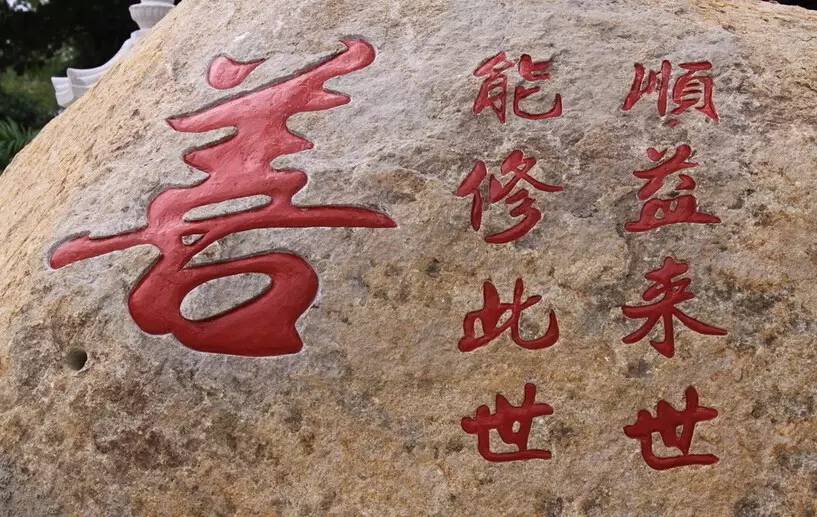 順益來世
能修此世
善